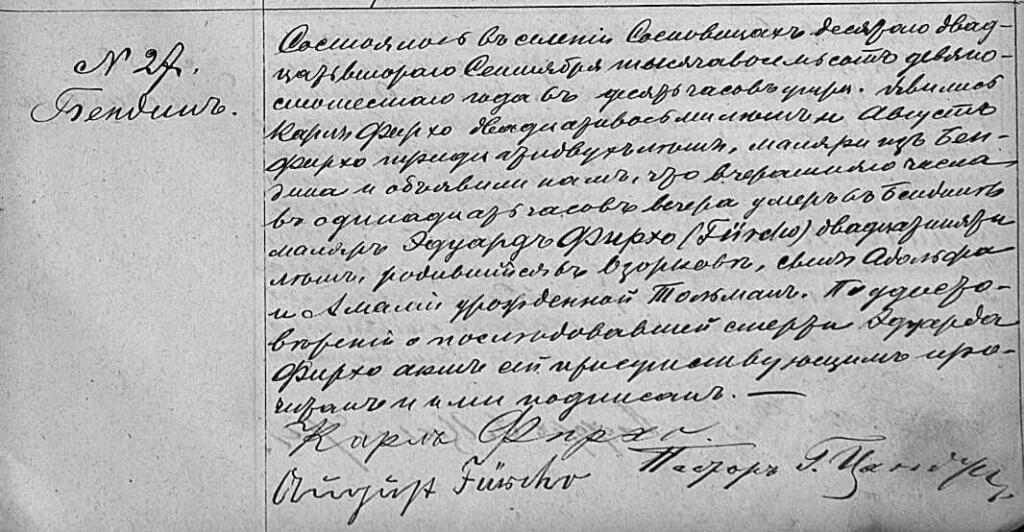 N 27.
Бендинъ.
Состоялось въ селеніи Сосновицахъ десятаго двад-
цатьвтораго Сентября тысячавосемьсотъ девяно-
стошестаго года въ десять часовъ утра. Явились
Карлъ Фирхо двадцативосьмилѣтъ и Августъ
Фирхо тридцатидвухълѣтъ, маляри изъ Бен-
дина и объявили намъ, что вчерашняго числа
въ одинадцать часовъ вечера умеръ въ Бендинѣ
маляръ Эдуардъ Фирхо (Fürcho) двадцатипяти
лѣтъ, родившійся въ Озорковѣ, сынъ Адольфа
и Амаліи урожденной Тольманъ. По удосто-
вѣреніи о послѣдовавшей смерти Эдуарда
Фирхо актъ сей присутствующимъ про-
читанъ и ими подписанъ. —
Карлъ Фирхо.
August Fürcho
Пасторъ Г.